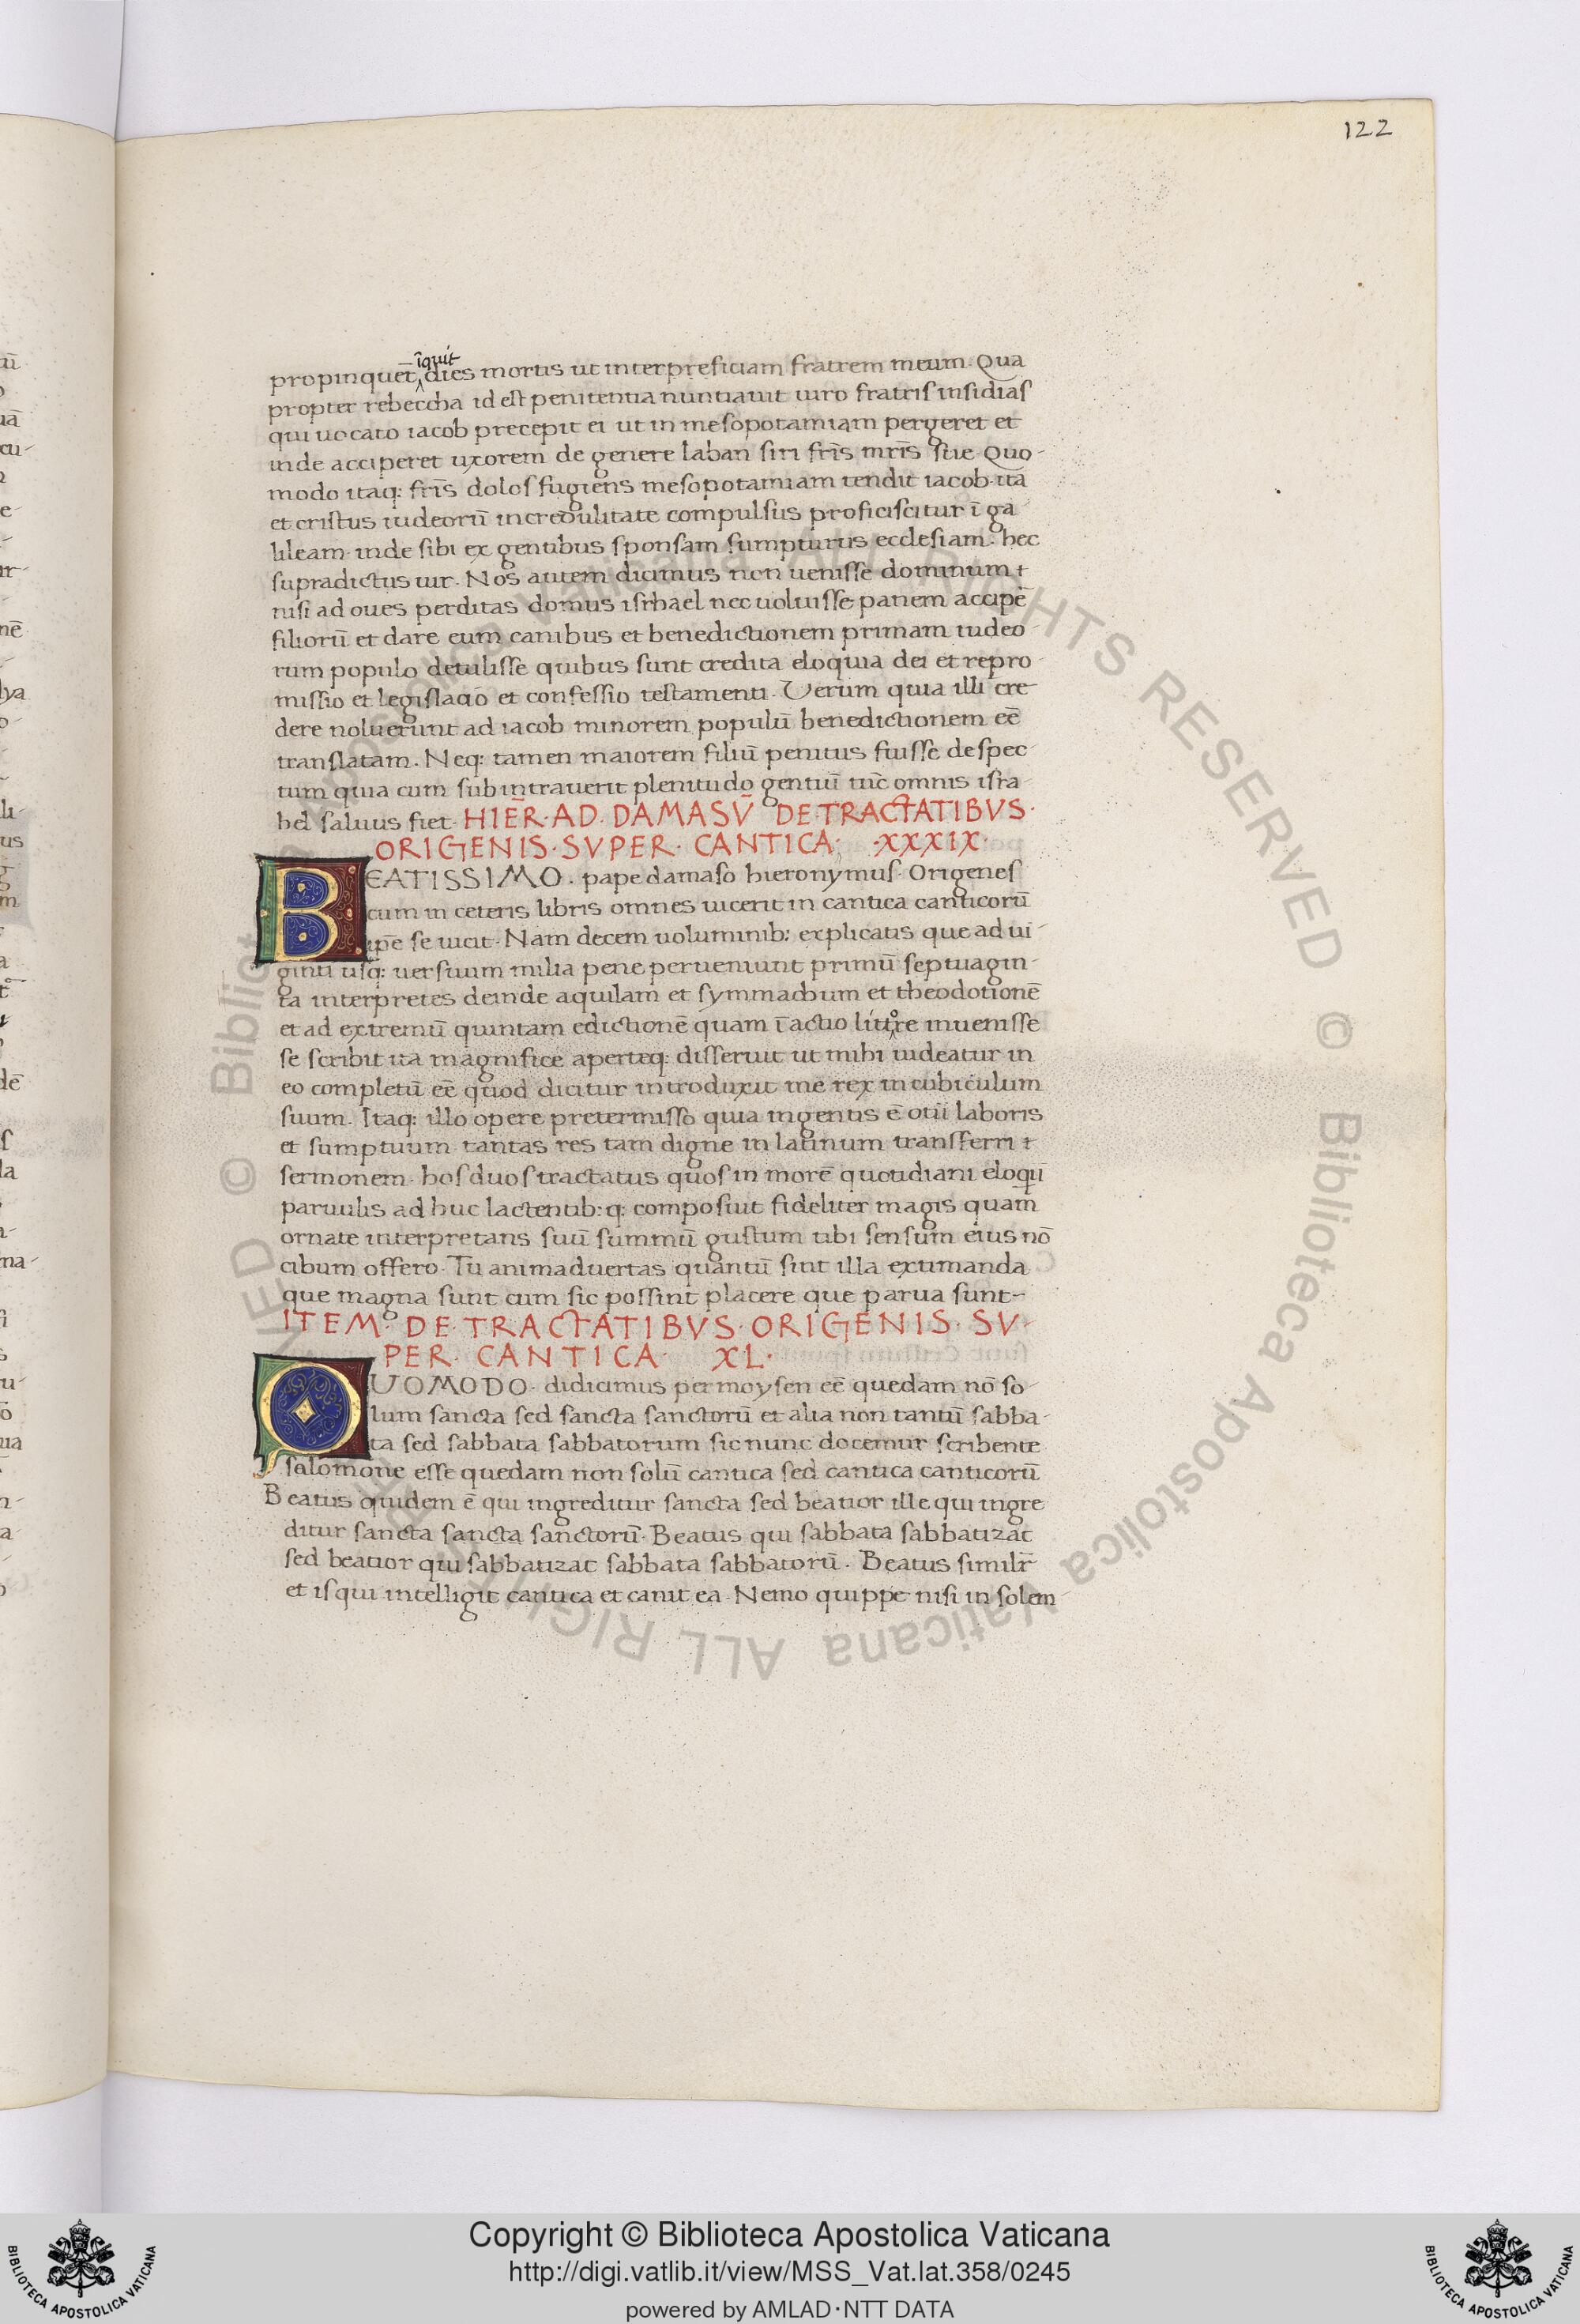 122
propinquet̄ īquit dies mortis ut interpreficiam fratrem meum. Qua
propter rebeccha id est penitentia nuntiauit uiro fratris insidias
qui uocato iacob precepit ei ut in mesopotamiam pergeret et
inde acciperet uxorem de genere laban siri fr̄is mr̄is sue. Quo-
modo itaq: fr̄is dolos fugiens mesopotamiam tendit iacob. ita
et cristus iudeorū incredulitate compulsus proficiscitur ī ga
lileam. inde sibi ex gentibus sponsam sumpturus ecclesiam. hec
supradictus uir. Nos autem dicimus non uenisse dominum
nisi ad oues perditas domus isrhael nec uoluisse panem accipē
filiorū et dare eum canibus et benedictionem primam iudeo
rum populo detulisse quibus sunt credita eloquia dei et repro
missio et legislatio et confessio testamenti. Verum quia illi cre
dere noluerunt ad iacob minorem populū benedictionem eē
translatam. Neq: tamen maiorem filiū penitus fuisse despec
tum quia cum subintrauerit plenitudo gentiū tūc omnis isra
hel saluus fiet. HIER̄·AD·DAMASV̄ DE TRACTATIBVS·
ORIGENIS·SVPER·CANTICA· ·XXXIX·
BEATISSIMO. pape damaso hieronymus. Origenes
cum in ceteris libris omnes uicerit in cantica canticorū
ip̄e se uicit. Nam decem uoluminib: explicatis que ad ui-
ginti usq: uersuum milia pene perueniunt primū septuagin-
ta interpretes deinde aquilam et symmachum et theodotionē
et ad extremū quintam edictionē quam ī actio littore inuenisse
se scribit ita magnifice aperteq: disseruit ut mihi uideatur in
eo completū eē quod dicitur introduxit me rex in cubiculum
suum. Itaq: illo opere pretermisso quia ingentis ē otii laboris
et sumptuum tantas res tam digne in latinum transferri
sermonem. hos duos tractatus quos in morē quotidiani eloqii
paruulis ad huc lactentib: q: composuit fideliter magis quam
ornate interpretans suū summū gustum tibi sensum eius nō
cibum offero. Tu animaduertas quantū sint illa extimanda
que magna sunt cum sic possint placere que parua sunt-
ITEM·DE·TRACTATIBVS·ORIGENIS·SV-
PER·CANTICA· XL·
QUOMODO. didicimus per moysen eē quedam nō so-
lum sancta sed sancta sanctorū et alia non tantū sabba-
ta sed sabbata sabbatorum sic nunc docemur scribente
salomone esse quedam non solū cantica sed cantica canticorū
Beatus quidem ē qui ingreditur sancta sed beatior ille qui ingre
ditur sancta sancta sanctorū. Beatus qui sabbata sabbatizat
sed beatior qui sabbatizat sabbata sabbatorū. Beatus similr̄
et is qui intelligit cantica et canit ea. Nemo quippe nisi in solem-
Copyright © Biblioteca Apostolica Vaticana
http://digi.vatlib.it/view/MSS_Vat.lat.358/0245
powered by AMLAD·NTT DATA
BIBLIOTECA APOSTOLICA VATICANA
BIBLIOTECA APOSTOLICA VATICANA